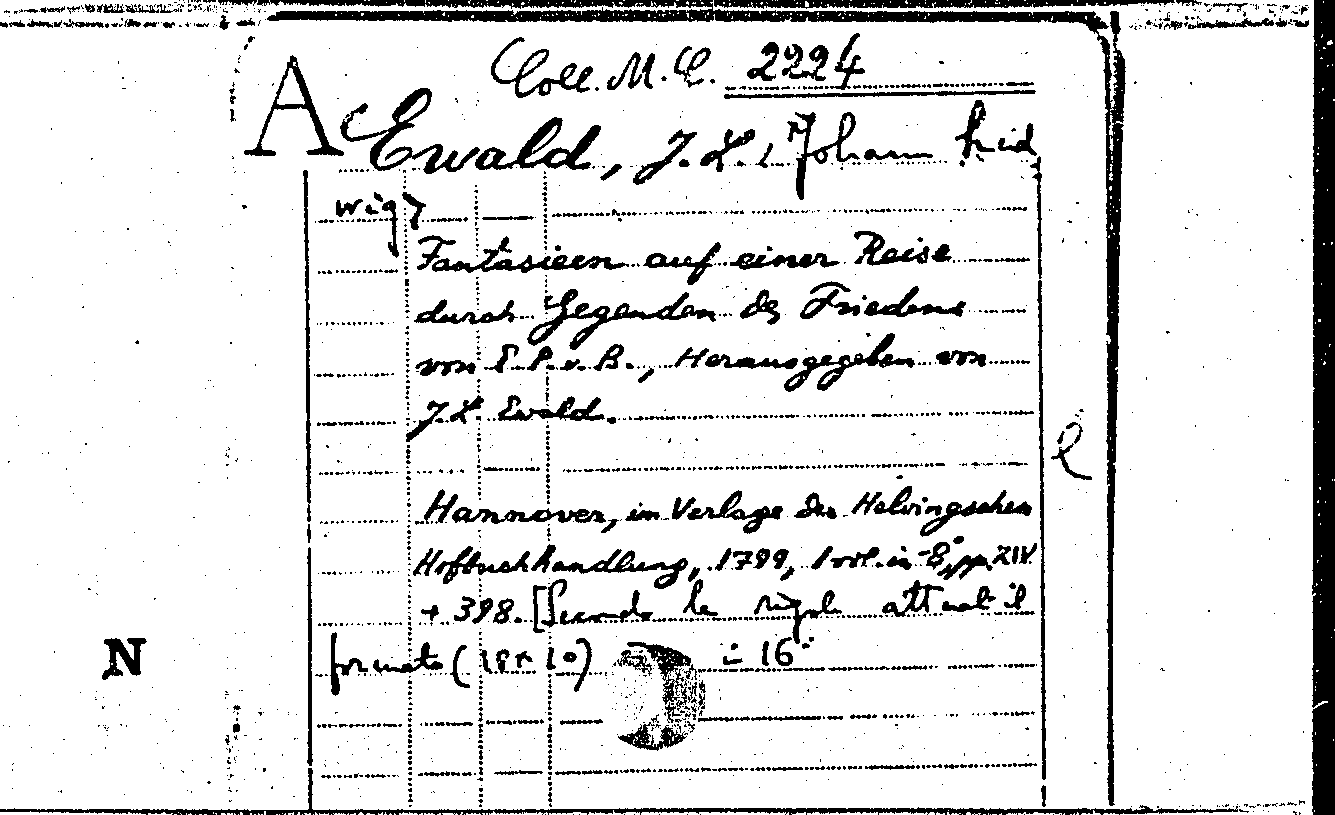 Coll. M. C. 2224
A
Ewald, J. L., Johann Lud
wig>
Fantasieen auf einer Reise
durch Gegenden des Friedens
von E. P. v. B., Herausgegeben von
J. L. Ewald.
l
Hannover, im Verlage der Helwingschen
Hofbuchhandlung, 1799, 1 vol. in-8°, pp. XIV
+ 398. [Secondo le regole attuali il
formato (18 x 10) è 16°
N